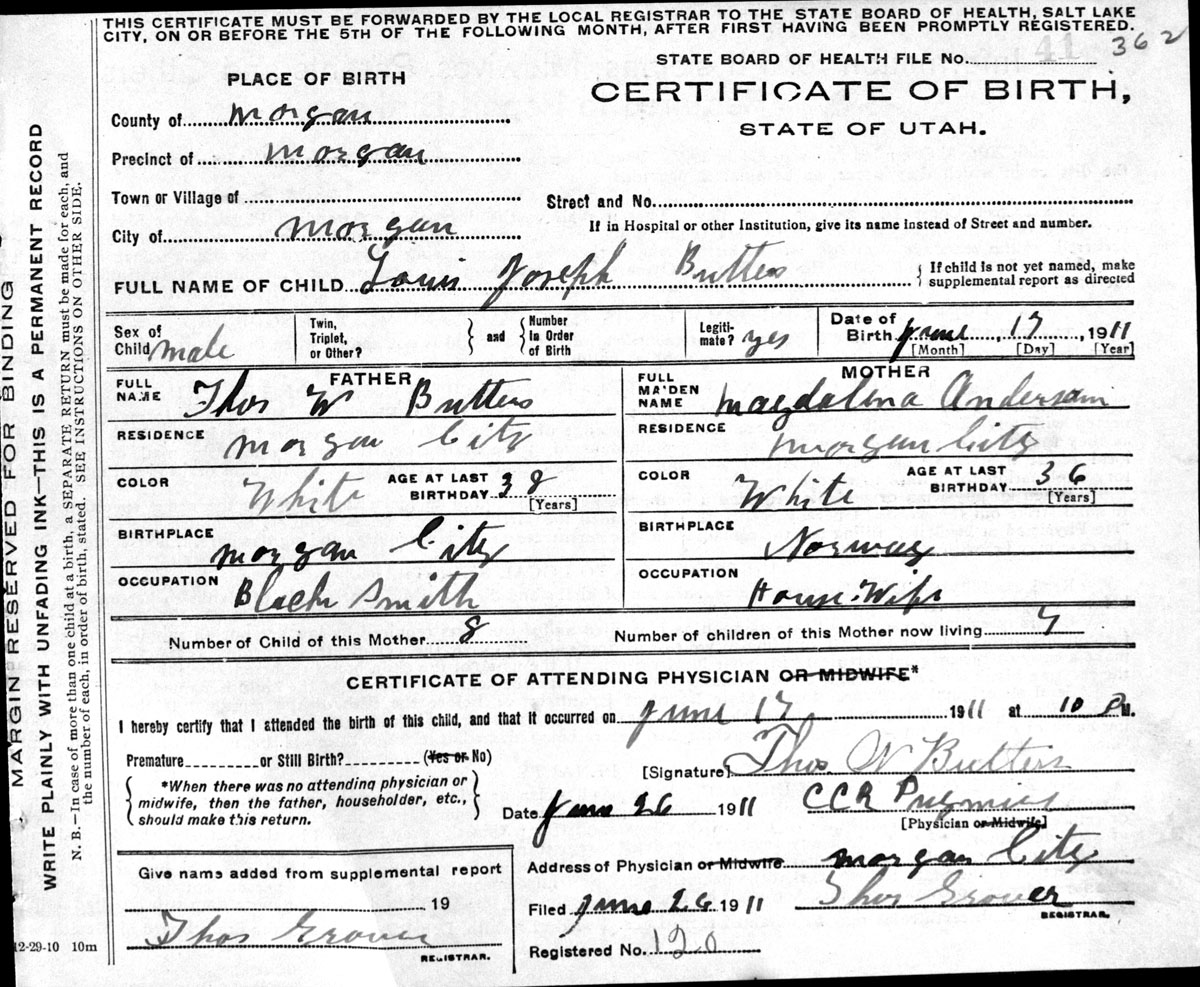 THIS CERTIFICATE MUST BE FORWARDED BY THE LOCAL REGISTRAR TO THE STATE BOARD OF HEALTH, SALT LAKE
CITY, ON OR BEFORE THE 5TH OF THE FOLLOWING MONTH, AFTER FIRST HAVING BEEN PROMPTLY REGISTERED.
362
STATE BOARD OF HEALTH FILE No. 41
PLACE OF BIRTH
CERTIFICATE OF BIRTH,
STATE OF UTAH.
County of Morgan
Precinct of Morgan
Town or Village of
Street and No.
City of Morgan
If in Hospital or other Institution, give its name instead of Street and number.
FULL NAME OF CHILD Louis Joseph Butters
{ If child is not yet named, make
supplemental report as directed
Sex of
Child male
Twin,
Triplet,
or Other?
} and {
Number
in Order
of Birth
Legiti-
mate? yes
Date of
Birth June, 17, 1911
[Month] [Day] [Year]
FATHER
FULL
NAME Thos W Butters
MOTHER
FULL
MAIDEN
NAME Magdalena Anderson
RESIDENCE Morgan City
RESIDENCE Morgan City
COLOR White
AGE AT LAST
BIRTHDAY 38
[Years]
COLOR White
AGE AT LAST
BIRTHDAY 36
[Years]
BIRTHPLACE Morgan City
BIRTHPLACE Norway
OCCUPATION Black Smith
OCCUPATION House Wife
Number of Child of this Mother 8
Number of children of this Mother now living 7
CERTIFICATE OF ATTENDING PHYSICIAN OR MIDWIFE*
I hereby certify that I attended the birth of this child, and that it occurred on June 17 1911 at 10 P M.
Premature or Still Birth? (Yes or No)
{ *When there was no attending physician or
midwife, then the father, householder, etc.,
should make this return. }
[Signature] Thos W Butters
Date June 26 1911 CCR Pugmire
[Physician or Midwife]
Address of Physician or Midwife Morgan City
Filed June 26 1911 Thos Grover
REGISTRAR.
Registered No. 120
Give name added from supplemental report
19
Thos Grover
REGISTRAR.
12-29-10 10m
MARGIN RESERVED FOR BINDING
WRITE PLAINLY WITH UNFADING INK—THIS IS A PERMANENT RECORD
N. B.—In case of more than one child at a birth, a SEPARATE RETURN must be made for each, and
the number of each, in order of birth, stated. SEE INSTRUCTIONS ON OTHER SIDE.